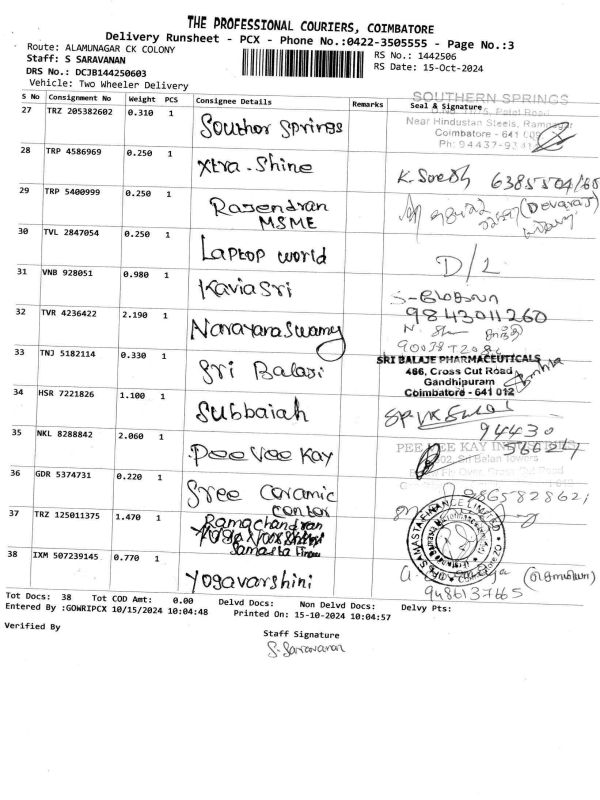 THE PROFESSIONAL COURIERS, COIMBATORE
Delivery Runsheet - PCX - Phone No.:0422-3505555 - Page No.:3
Route: ALAMUNAGAR CK COLONY
RS No.: 1442506
Staff: S SARAVANAN
RS Date: 15-Oct-2024
DRS No.: DCJB144250603
Vehicle: Two Wheeler Delivery
S No Consignment No Weight PCS Consignee Details Remarks Seal & Signature
SOUTHERN SPRINGS
27 TRZ 205382602 0.310 1 Southor Springs
Near Hindustan Steels,
Coimbatore - 641
28 TRP 4586969 0.250 1 Xtra-Shine
K. Suresh
29 TRP 5400999 0.250 1 Rajendran MSME
(Devaraj)
30 TVL 2847054 0.250 1 Laptop world D/L
31 VNB 928051 0.980 1 Kaviasri
9843011260
32 TVR 4236422 2.190 1 Narayaraswamy
33 TNJ 5182114 0.330 1 Sri Balaji
SRI BALAJE PHARMACEUTICALS
466, Cross Cut Road
Gandhipuram
Coimbatore - 641 012
34 HSR 7221826 1.100 1 Subbaiah
94430
35 NKL 8288842 2.060 1 Pee Vee Kay
PEE VEE KAY
36 GDR 5374731 0.220 1 Sree Ceramic center
9865828621
37 TRZ 125011375 1.470 1 Ramachandran
Samasta
SAMASTA FINANCE LIMITED
38 IXM 507239145 0.770 1 Yogavarshini
9486137665
Tot Docs: 38 Tot COD Amt: 0.00 Delvd Docs: Non Delvd Docs: Delvy Pts:
Entered By :GOWRIPCX 10/15/2024 10:04:48 Printed On: 15-10-2024 10:04:57
Verified By
Staff Signature
S. Saravanan